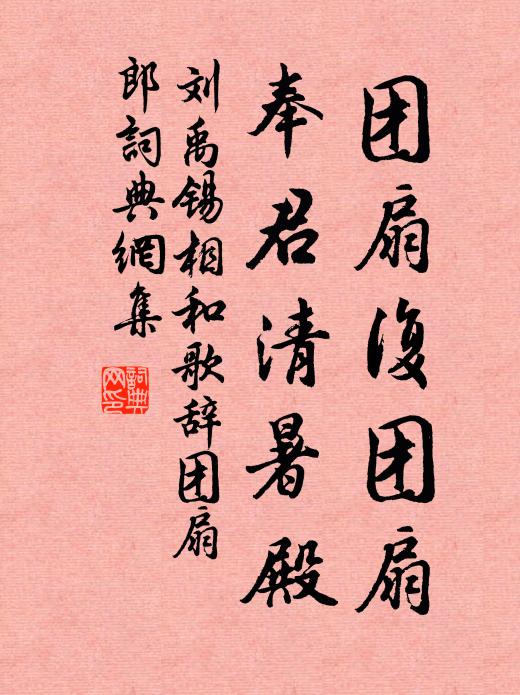 团扇復团扇
奉君清暑殿
刘禹锡相和歌辞团扇
郎詞典網集
詞典网印